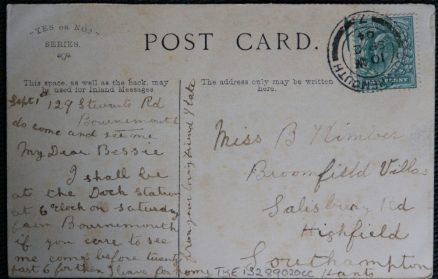 ~YES OR NO?~
SERIES.
POST CARD.
This space, as well as the back, may
be used for Inland Messages
The address only may be written
here.
Sept 1st
129 Stewarts Rd
Bournemouth
do come and see me
My Dear Bessie
I shall be
at the Dock Station
at 6 o'clock on Saturday
from Bournemouth
if you care to see
me come before twenty
past 6 for then I leave for home
from your loving friend
Miss B Kimber
Broomfield Villas
Salisbury Rd
Highfield
Southampton
Hants